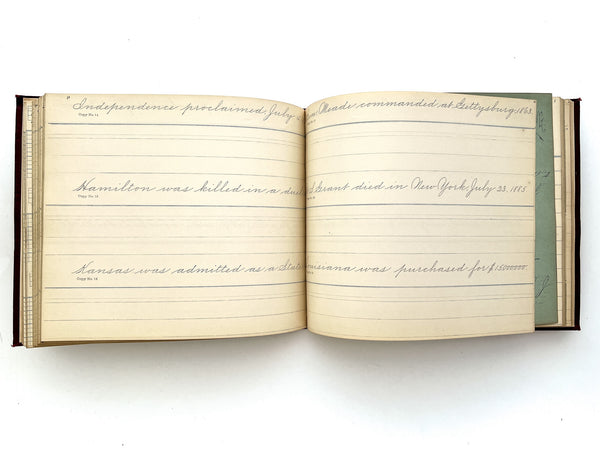 Independence proclaimed July
Copy No. 14
Hamilton was killed in a duel
Copy No. 15
Kansas was admitted as a State
Copy No. 16
Meade commanded at Gettysburg, 1863.
Grant died in New York July 23, 1885
Louisiana was purchased for $15000000.